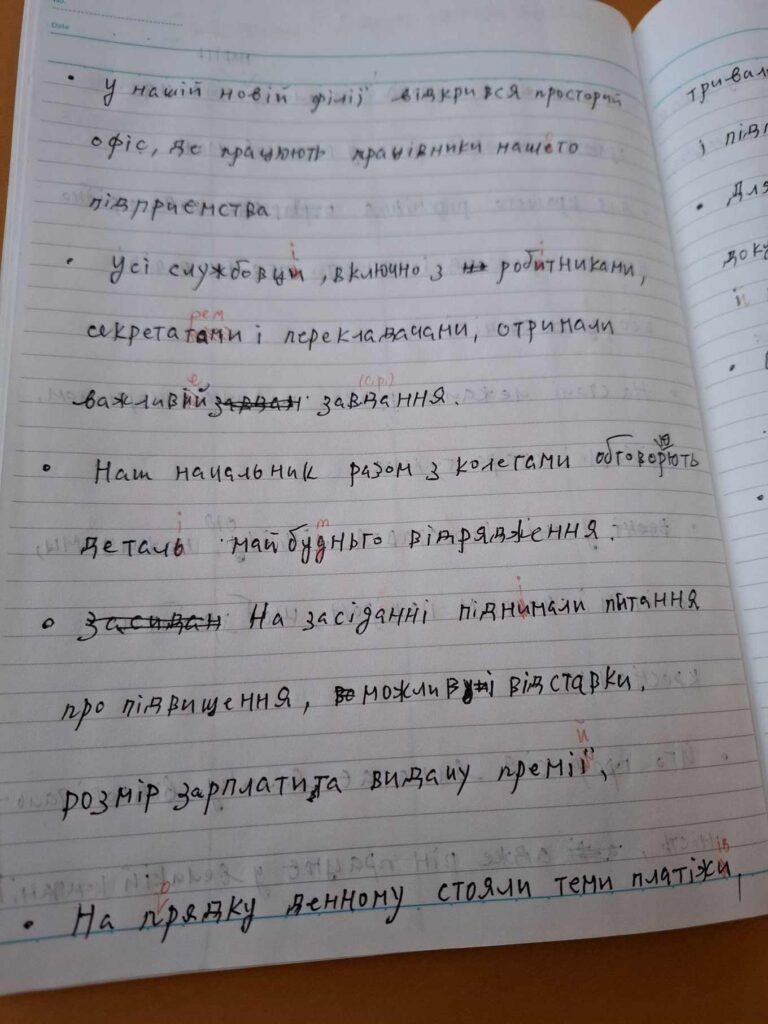 No.
Date
• У нашій новій філії відкрився просторий
офіс, де працюють працівники нашого
підприємства
• Усі службовці, включно з робітниками,
секретарем і перекладачами, отримали
важливе завдання. (с.р.)
• Наш начальник разом з колегами обговорюють
деталі майбутнього відрядження.
• На засіданні піднімали питання
про підвищення, можливі відставки,
розмір зарплати та видачу премій,
• На порядку денному стояли теми платіжів,
тривал
і підп
• Для
доку
й